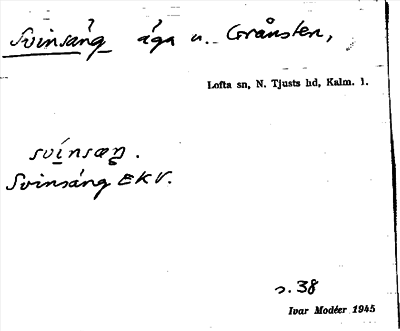 Svinsäng äga u. Gränsten,
Lofta sn, N. Tjusts hd, Kalm. l.
svinsæŋ.
Svinsäng EKV.
s. 38
Ivar Modéer 1945